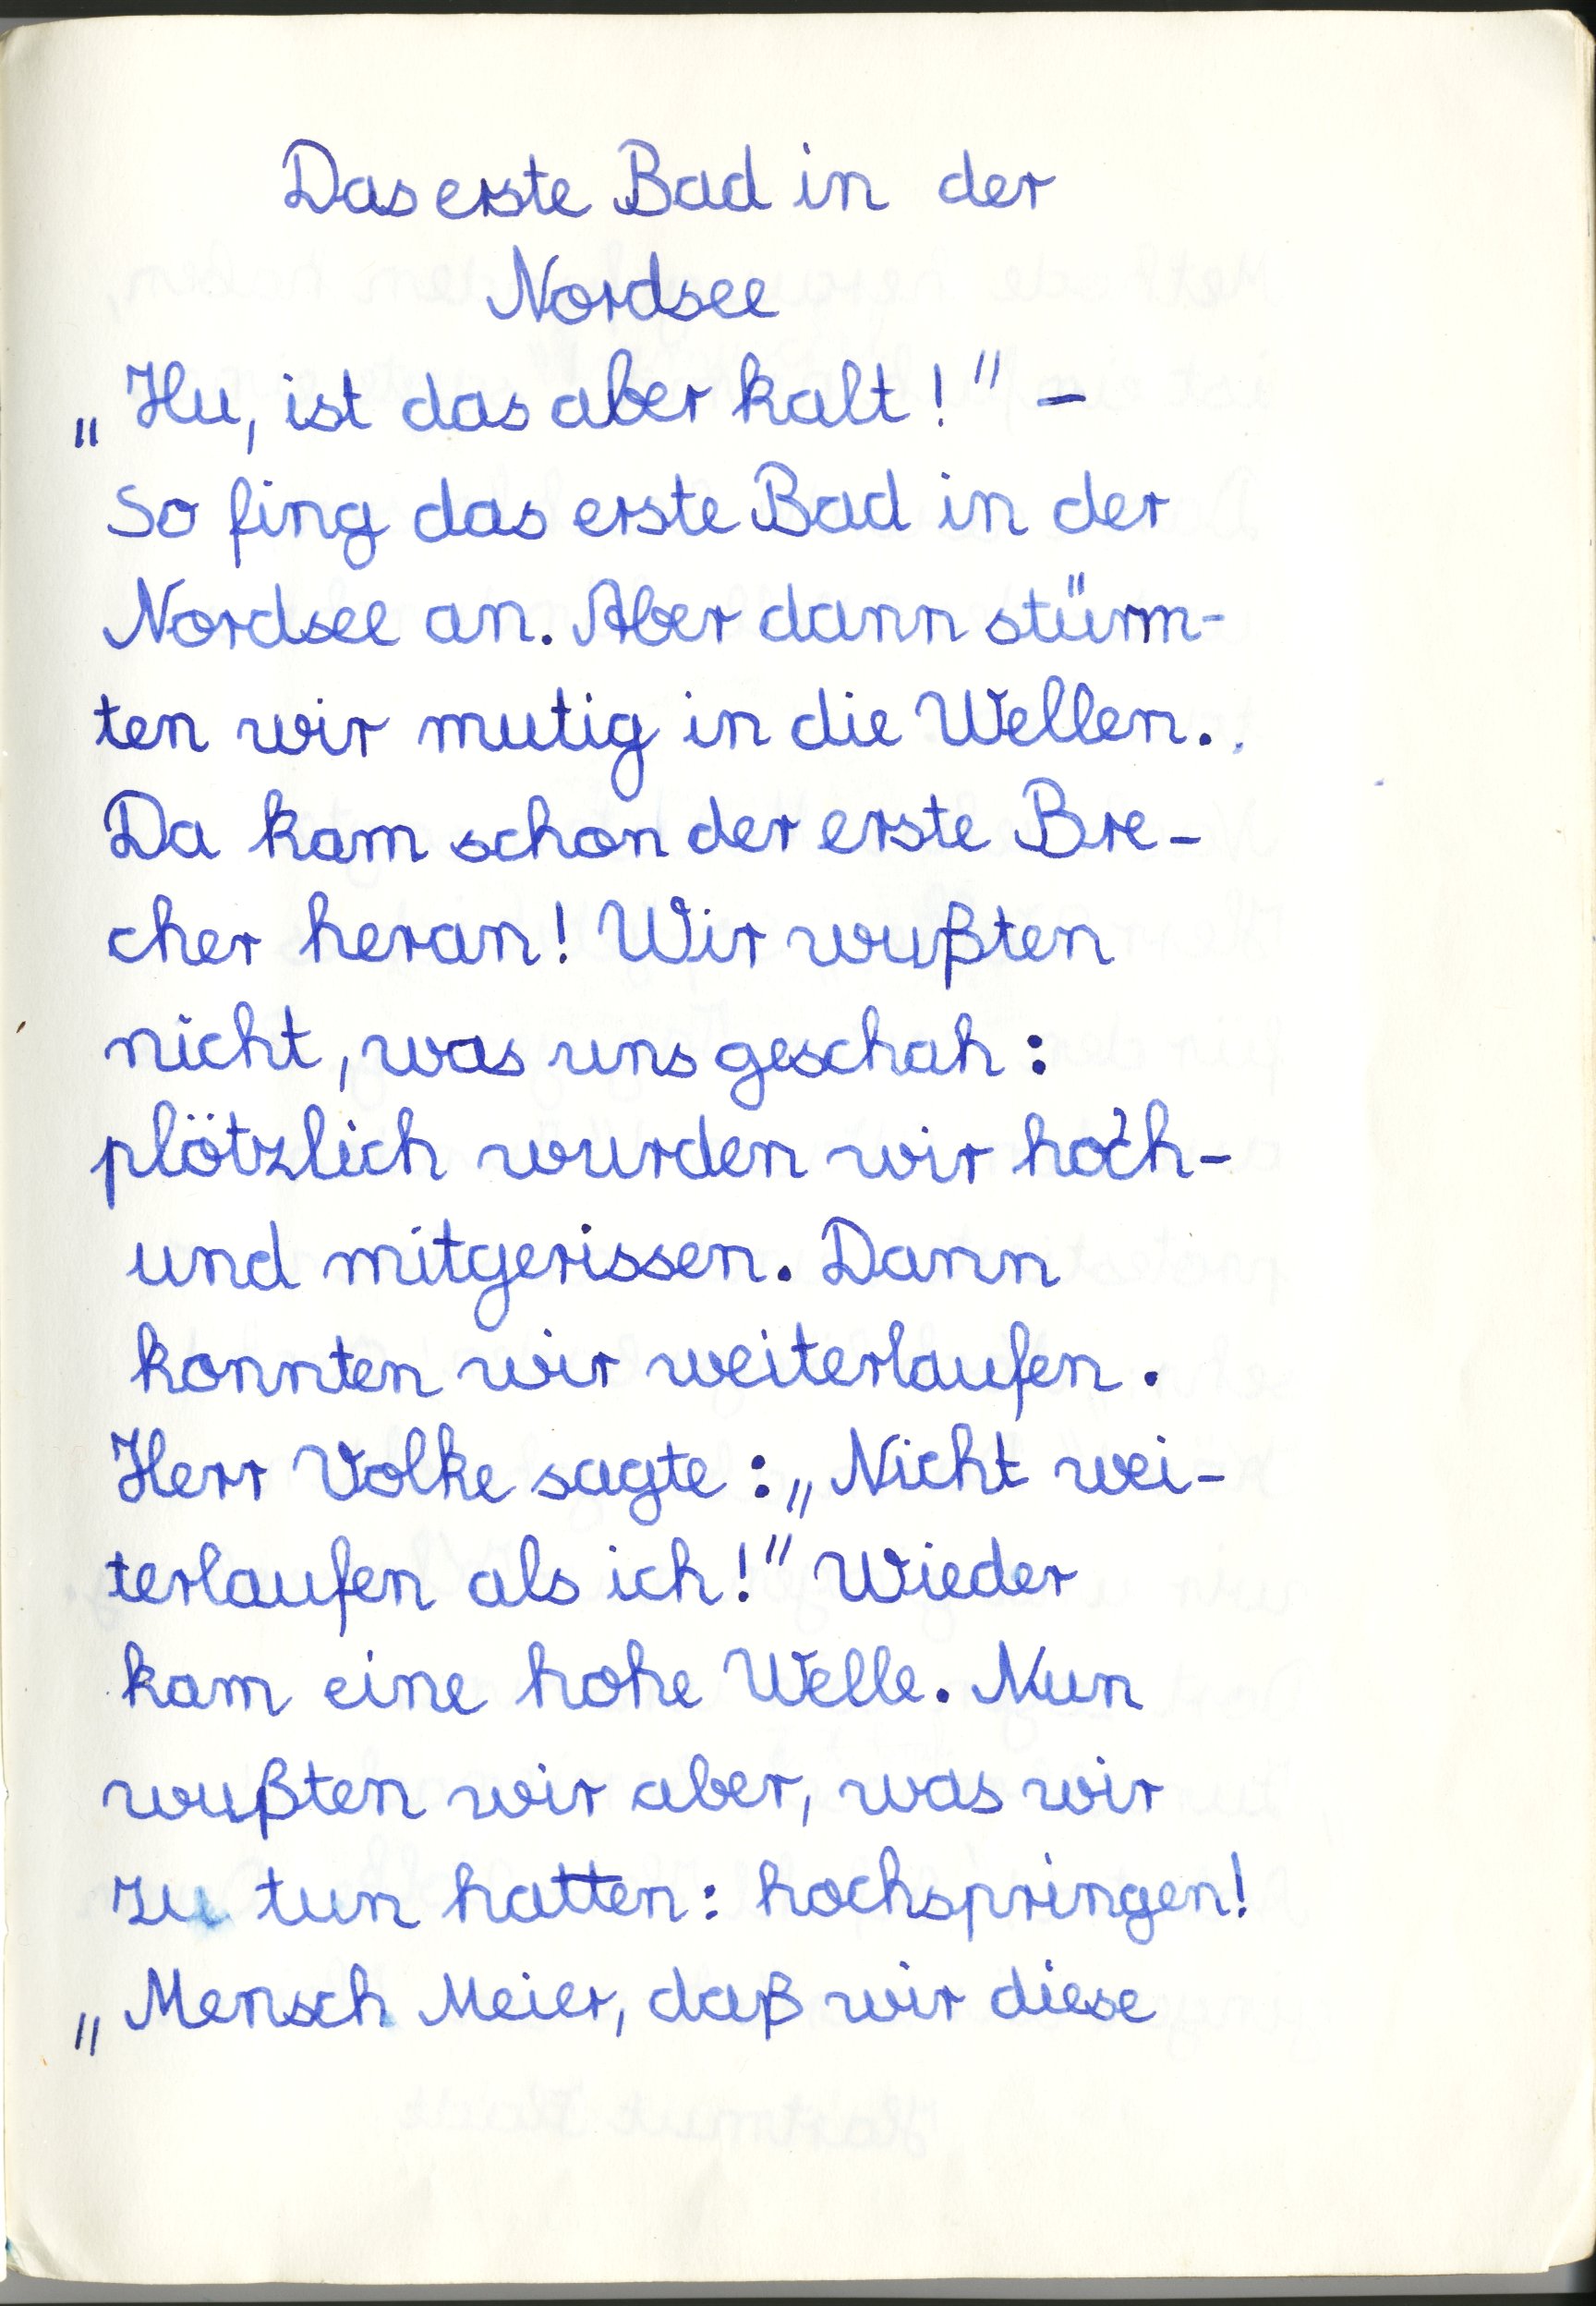 Das erste Bad in der
Nordsee
„Hu, ist das aber kalt!" –
So fing das erste Bad in der
Nordsee an. Aber dann stürm-
ten wir mutig in die Wellen.
Da kam schon der erste Bre-
cher heran! Wir wußten
nicht, was uns geschah:
plötzlich wurden wir hoch-
und mitgerissen. Dann
konnten wir weiterlaufen.
Herr Volke sagte: „Nicht wei-
terlaufen als ich!" Wieder
kam eine hohe Welle. Nun
wußten wir aber, was wir
zu tun hatten: hochspringen!
„Mensch Meier, daß wir diese